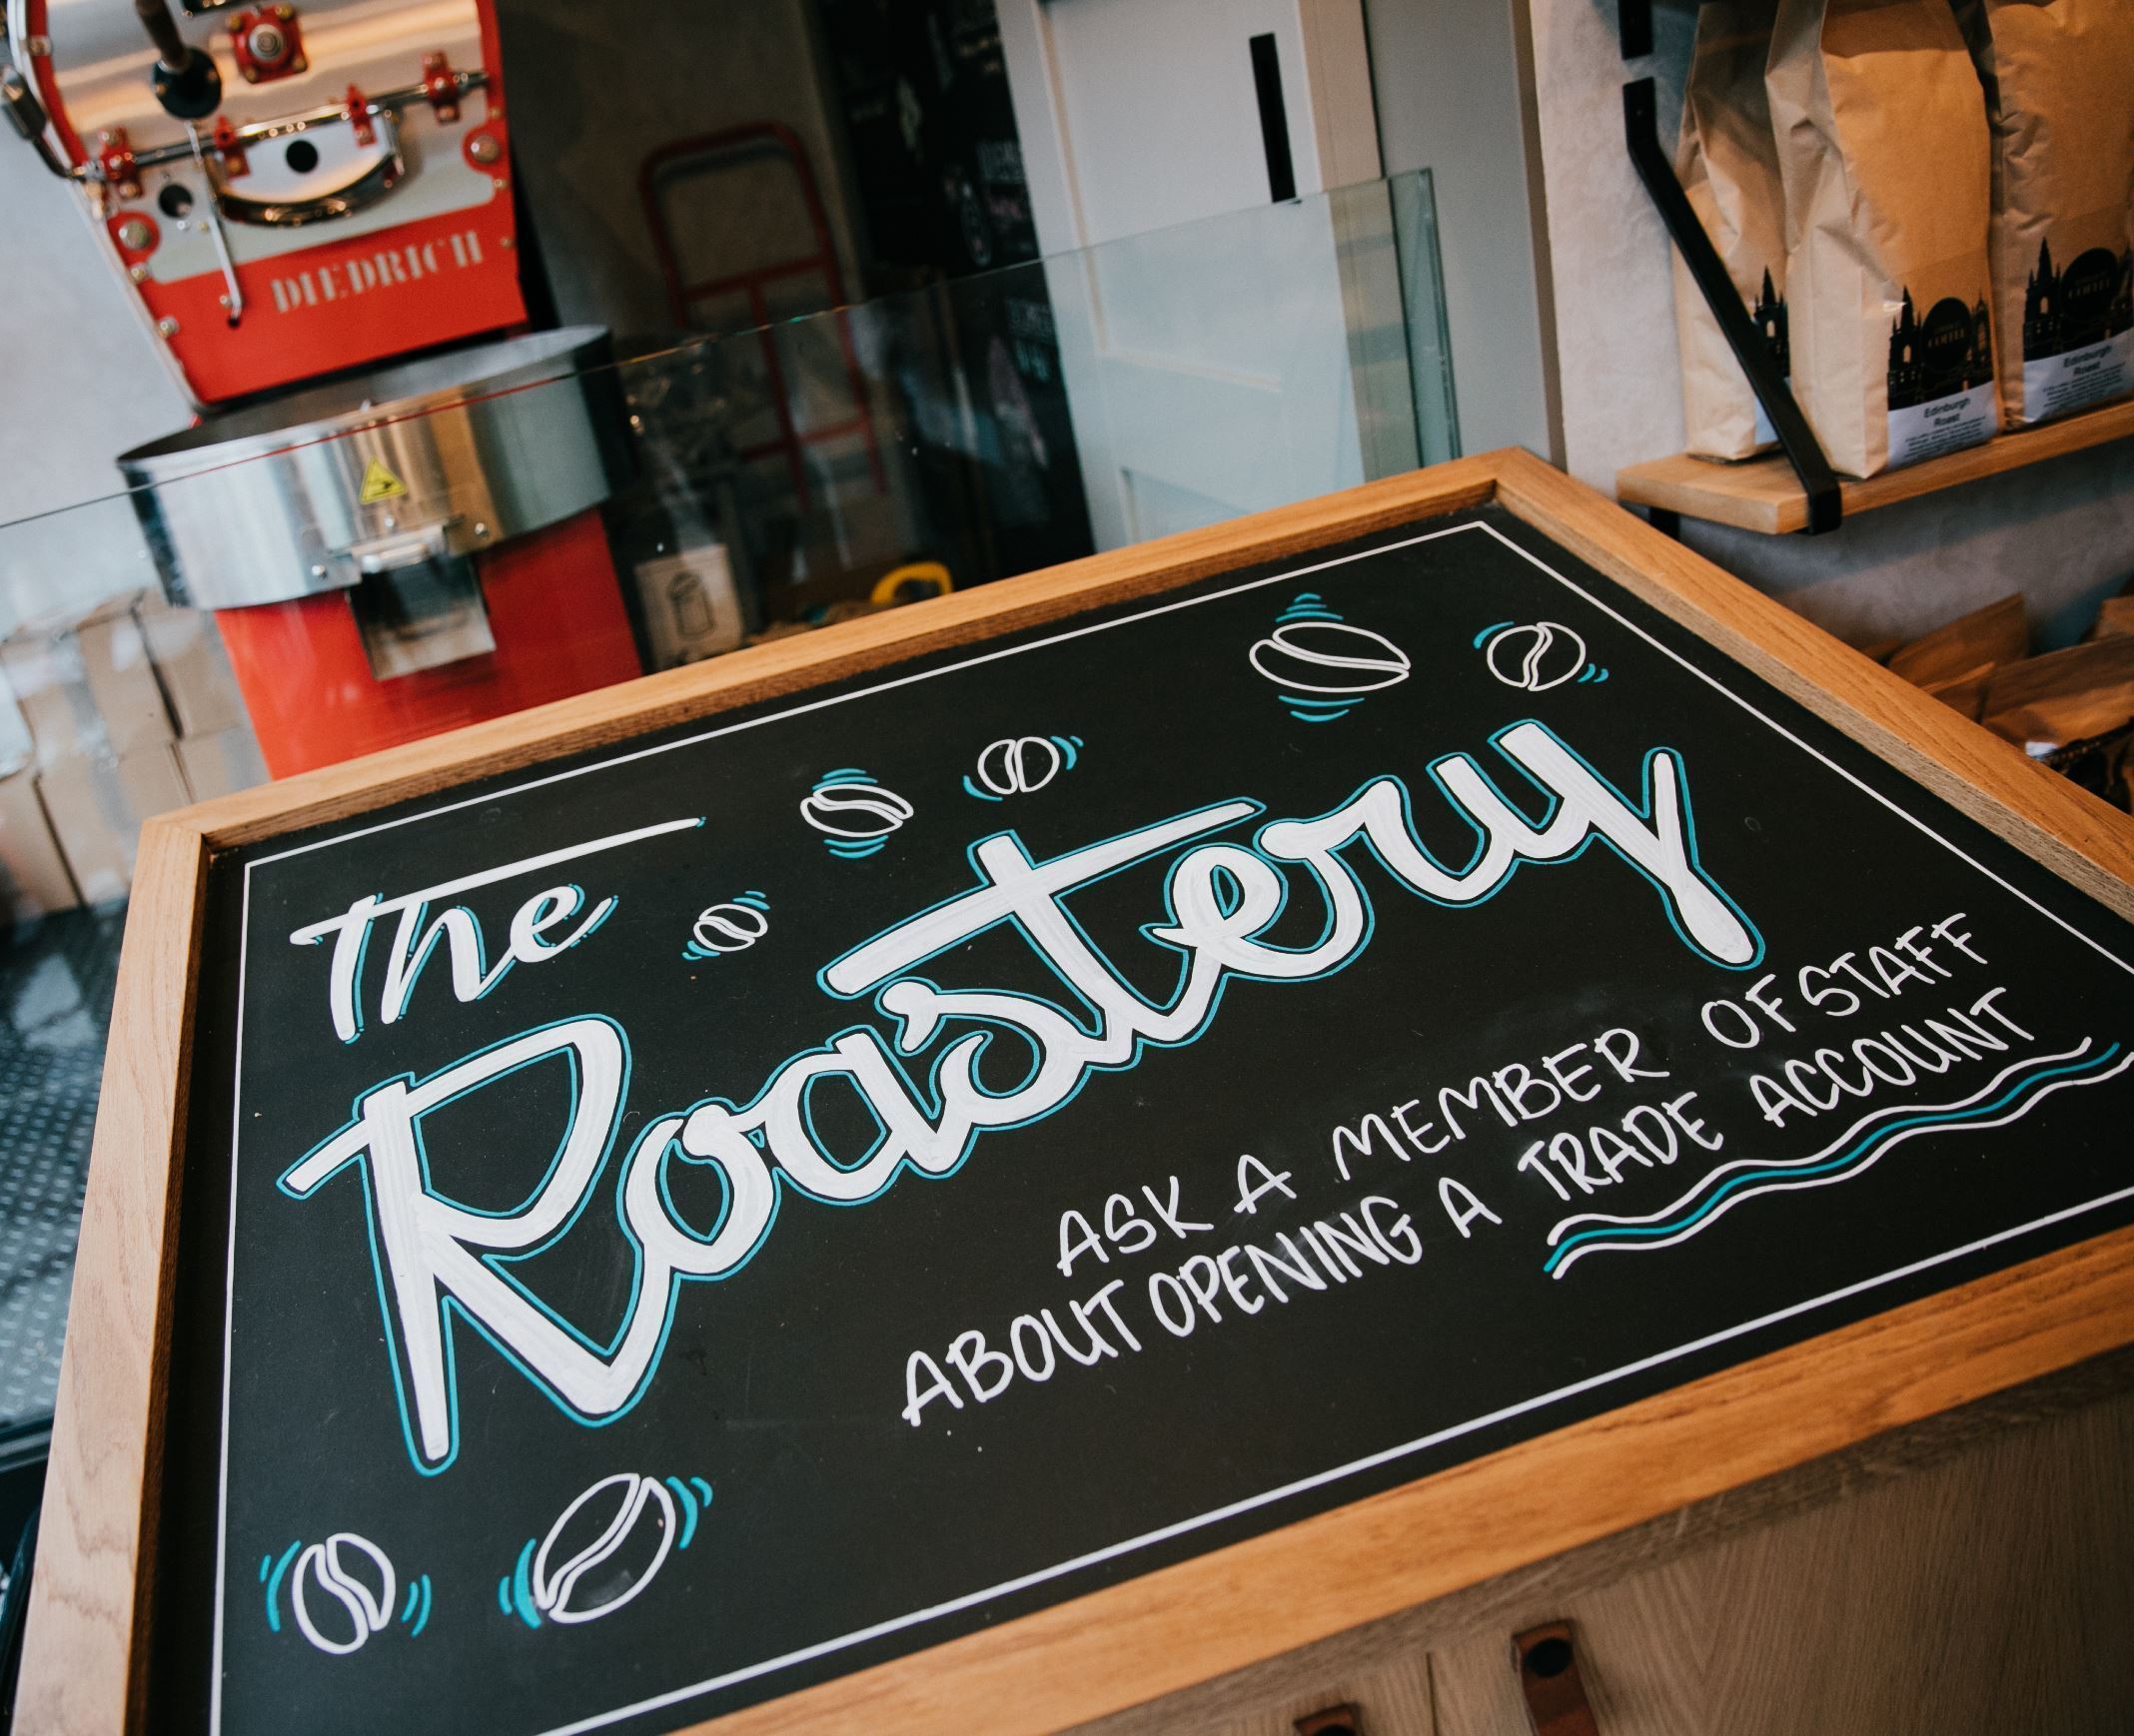 DIEDRICH
COFFEE
Edinburgh
Roast
COFFEE
Edinburgh
Roast
The
Roastery
ASK A MEMBER OF STAFF
ABOUT OPENING A TRADE ACCOUNT